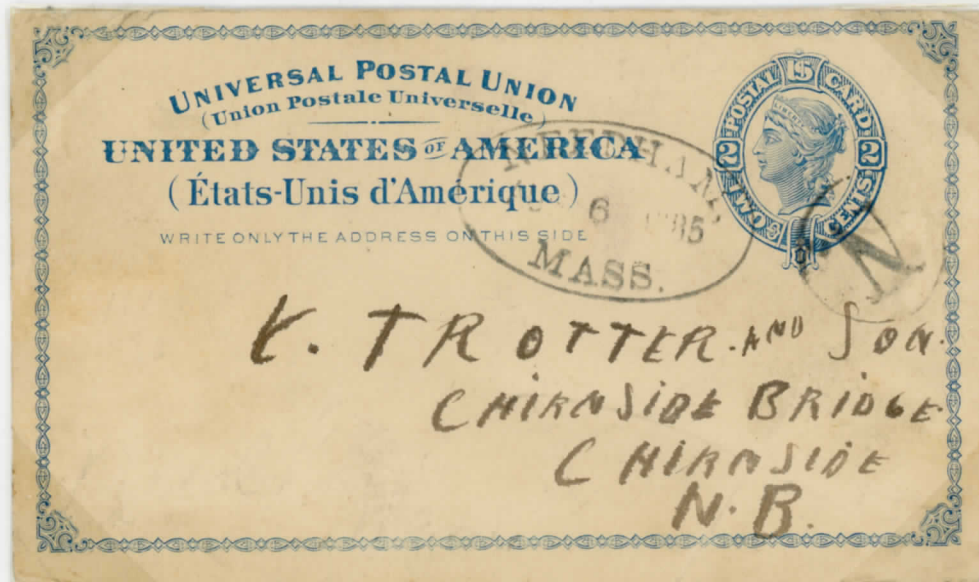 UNIVERSAL POSTAL UNION
(Union Postale Universelle)
UNITED STATES OF AMERICA
(États-Unis d'Amérique)
WRITE ONLY THE ADDRESS ON THIS SIDE
U.S. POSTAL CARD
TWO CENTS
2 2
NEEDHAM,
6
MASS.
N
TROTTER. AND SON.
CHIRNSIDE BRIDGE
CHIRNSIDE
N.B.